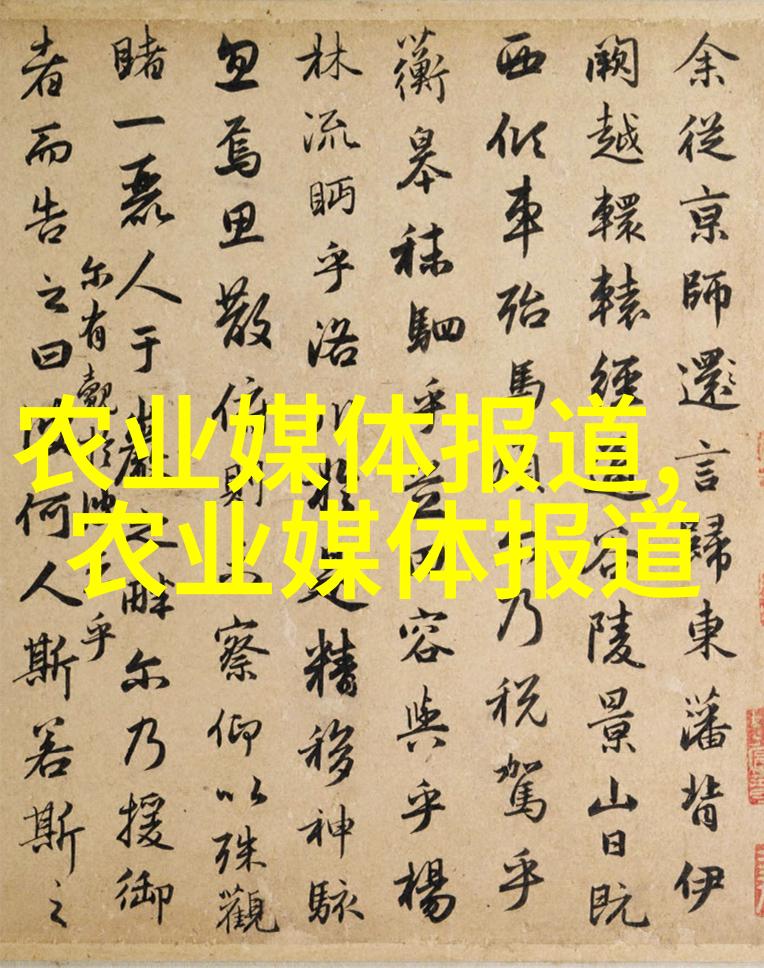 余從京師還言歸東藩背伊
闕越轘轅經通谷陵景山日既
西傾車殆馬煩尔乃税駕乎
蘅皋秣駟乎芝田容與乎楊
林流眄乎洛川於是精移神駭
忽焉思散俯則未察仰以殊觀
睹一麗人于巖之畔尔乃援御
者而告之曰
尔有覿於彼者乎
彼何人斯若斯之
农业媒体报道,
农业媒体报道